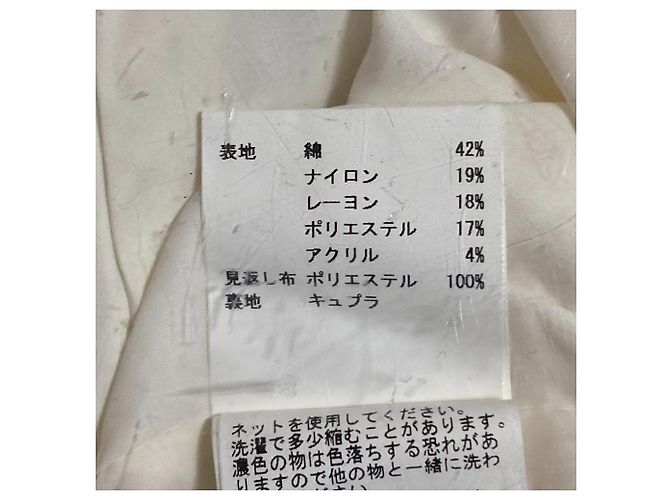 表地 綿 42%
ナイロン 19%
レーヨン 18%
ポリエステル 17%
アクリル 4%
見返し布 ポリエステル 100%
裏地 キュプラ
ネットを使用してください。
洗濯で多少縮むことがあります。
濃色のものは色落ちする恐れがあ
りますので他の物と一緒に洗わ